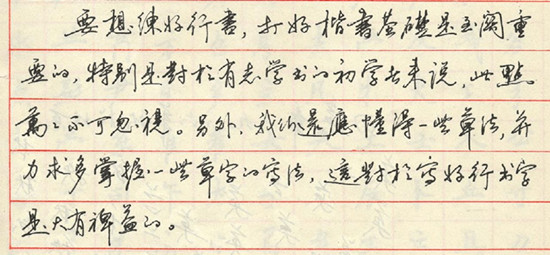 要想練好行書，打好楷書基礎是至關重
要的，特别是對於有志学书的初学者来说，此點
萬々不可忽視。另外，我们還應懂得一些草法，并
力求多掌握一些草字的寫法，這對於寫好行书字
是大有裨益的。